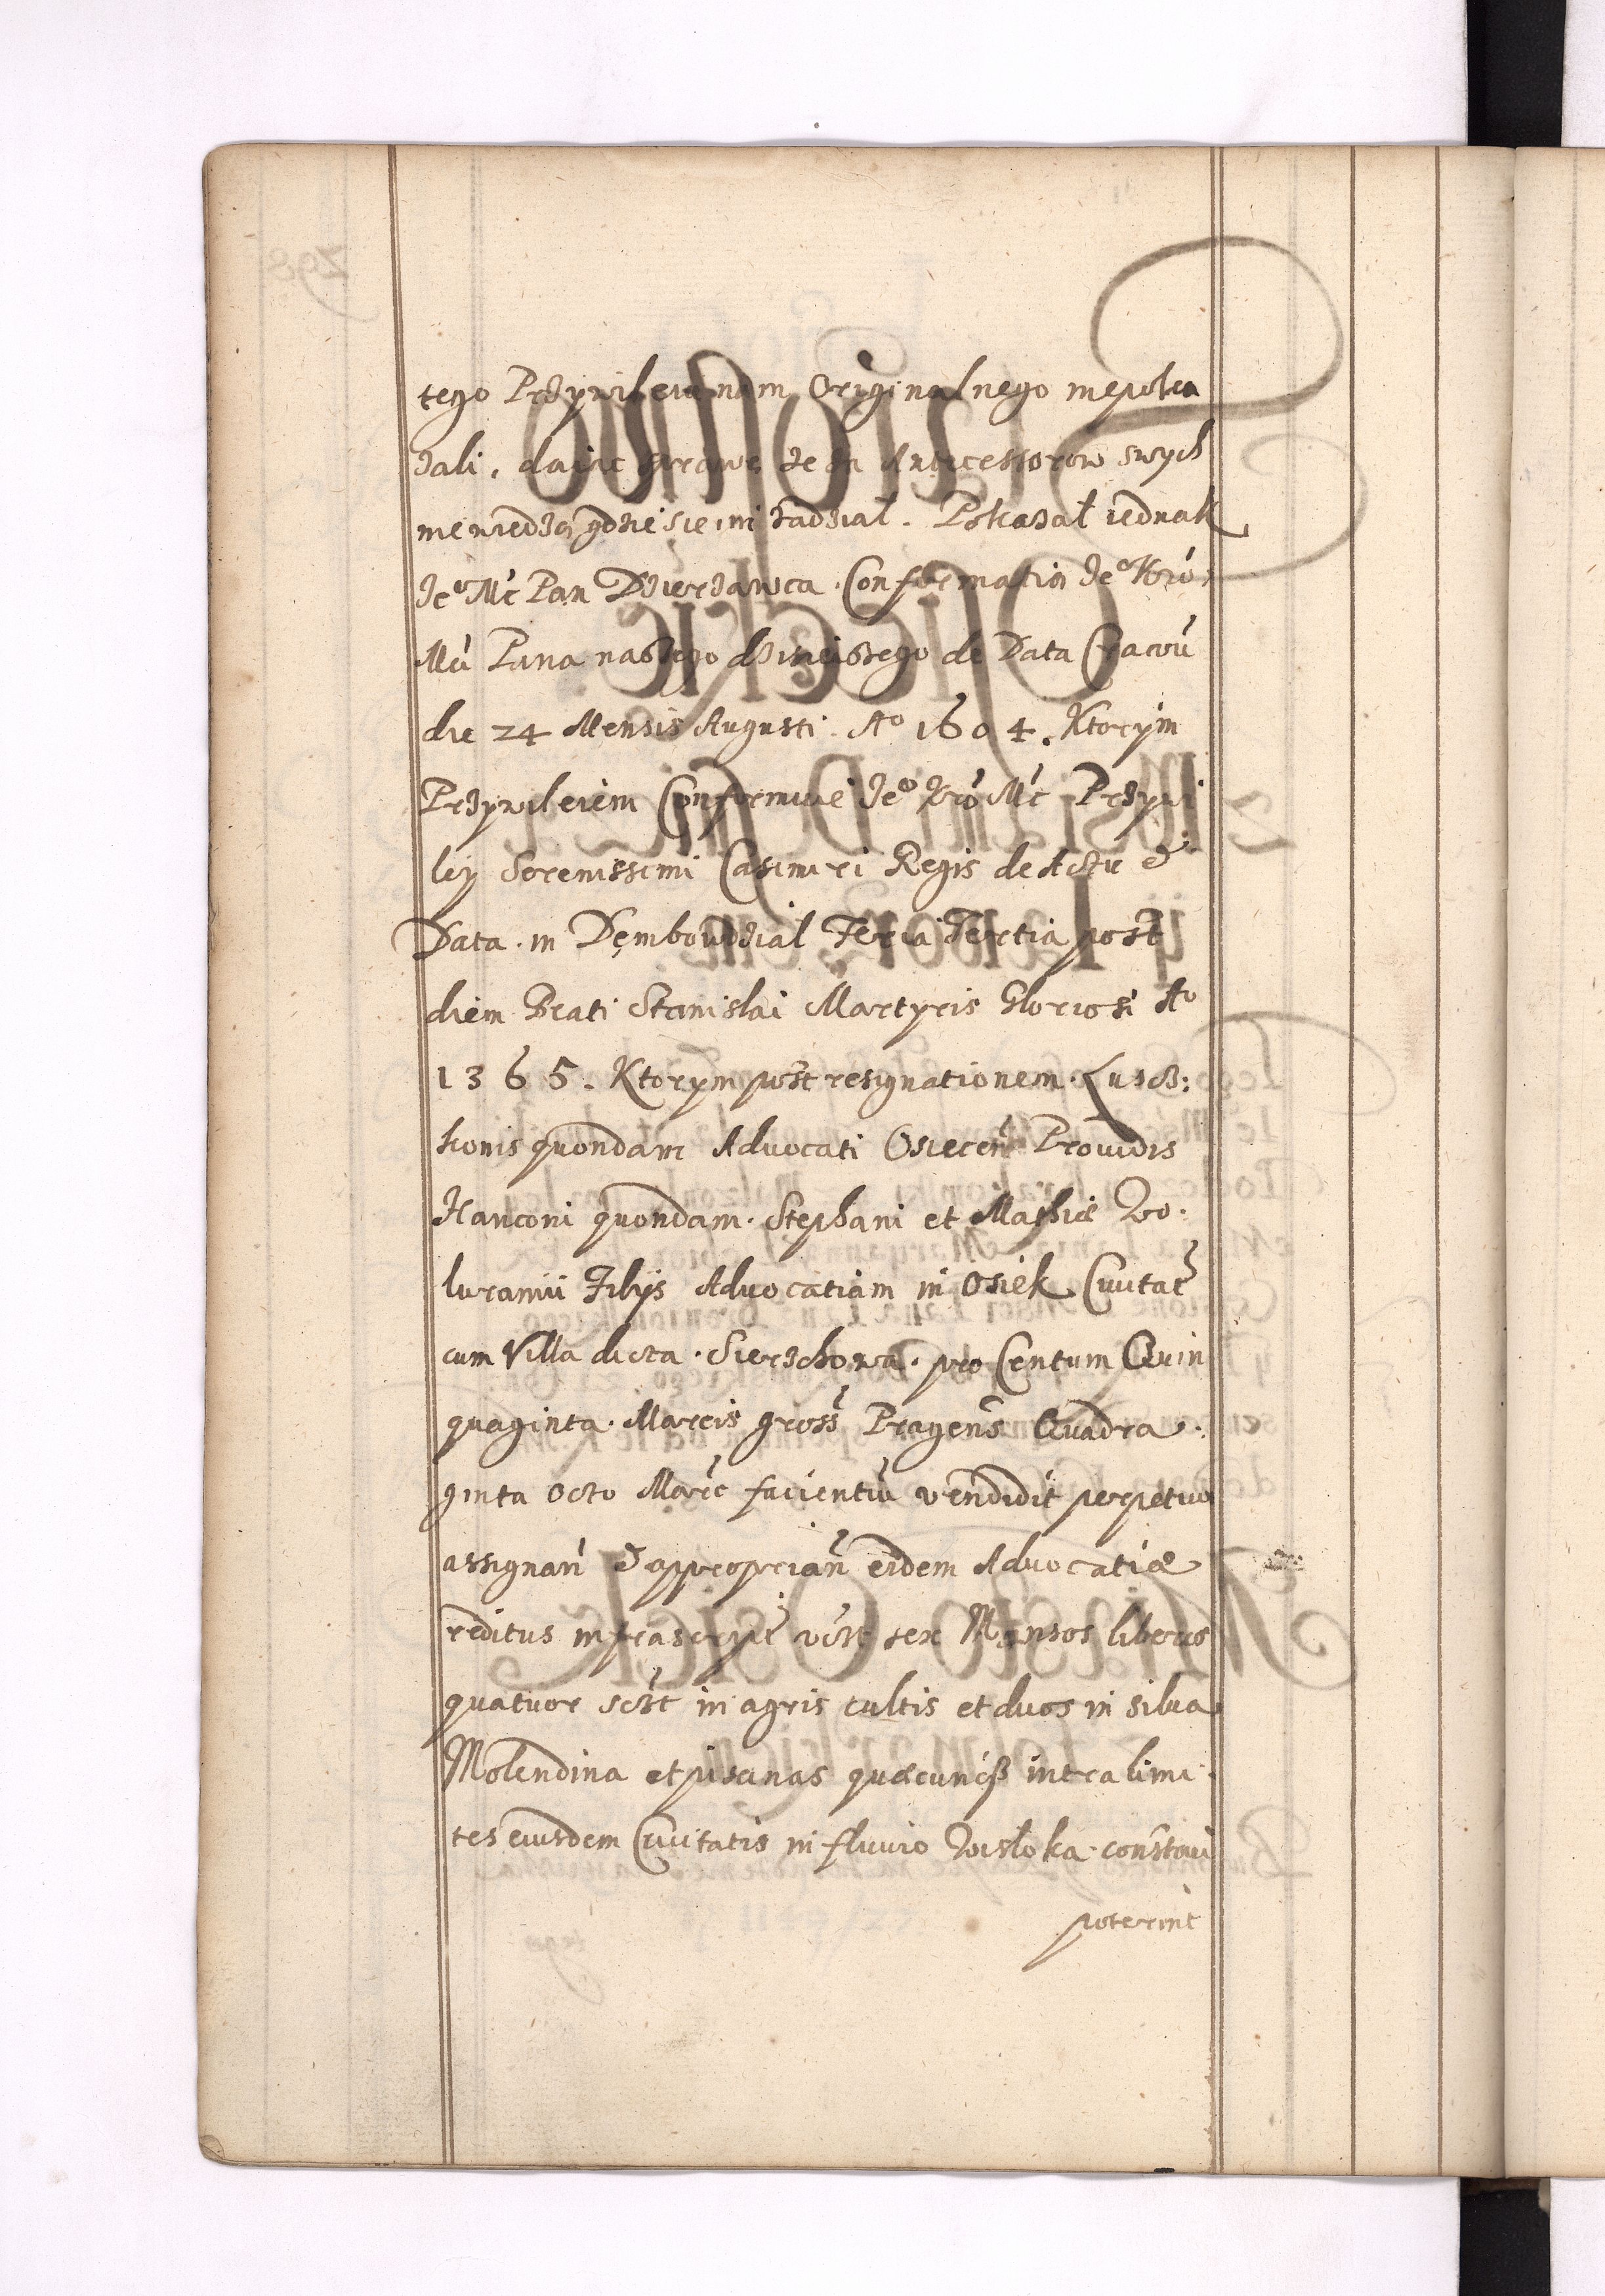 tego Przywileia nam Originalnego niepoka
zali, daiąc sprawę że za Antecessorow swych
niewiedzą gdzie sie im zadział. Pokazał iednak
Jeº Mć Pan Dzierzawca Confirmatią Jeº Kró
Mći Pana naszego dzisieiszego de Data Cracov
die 24 Mensis Augusti Aº 1604. Ktorym
Przywileiem Confirmuie Jeº Kró Mć Przywi
ley Serenissimi Casimiri Regis de Actu &
Data in Dembowdzial Feria Tertia post
diem Beati Stanislai Martyris Gloriosi Aº
1365. Ktorym post resignationem
konis quondam Advocati Osiecen Providis
Hanconi quondam Stephani et Mathiæ Wo
luramii Filijs Advocatiam in Osiek Civitat
cum Villa dicta Sierzchowa pro Centum Quin
quaginta Marcis gross Pragens Quadra
ginta octo Marc facientiu vendidit perpetuo
assignan & approprian eidem Advocatiæ
reditus infrascript vczt sex Mansos liberos
quatuor sczt in agris cultis et duos in silva
Molendina et piscinas quæcunqs intra limi
tes eiusdem Civitatis in fluvio Wisłoka construi
poterint